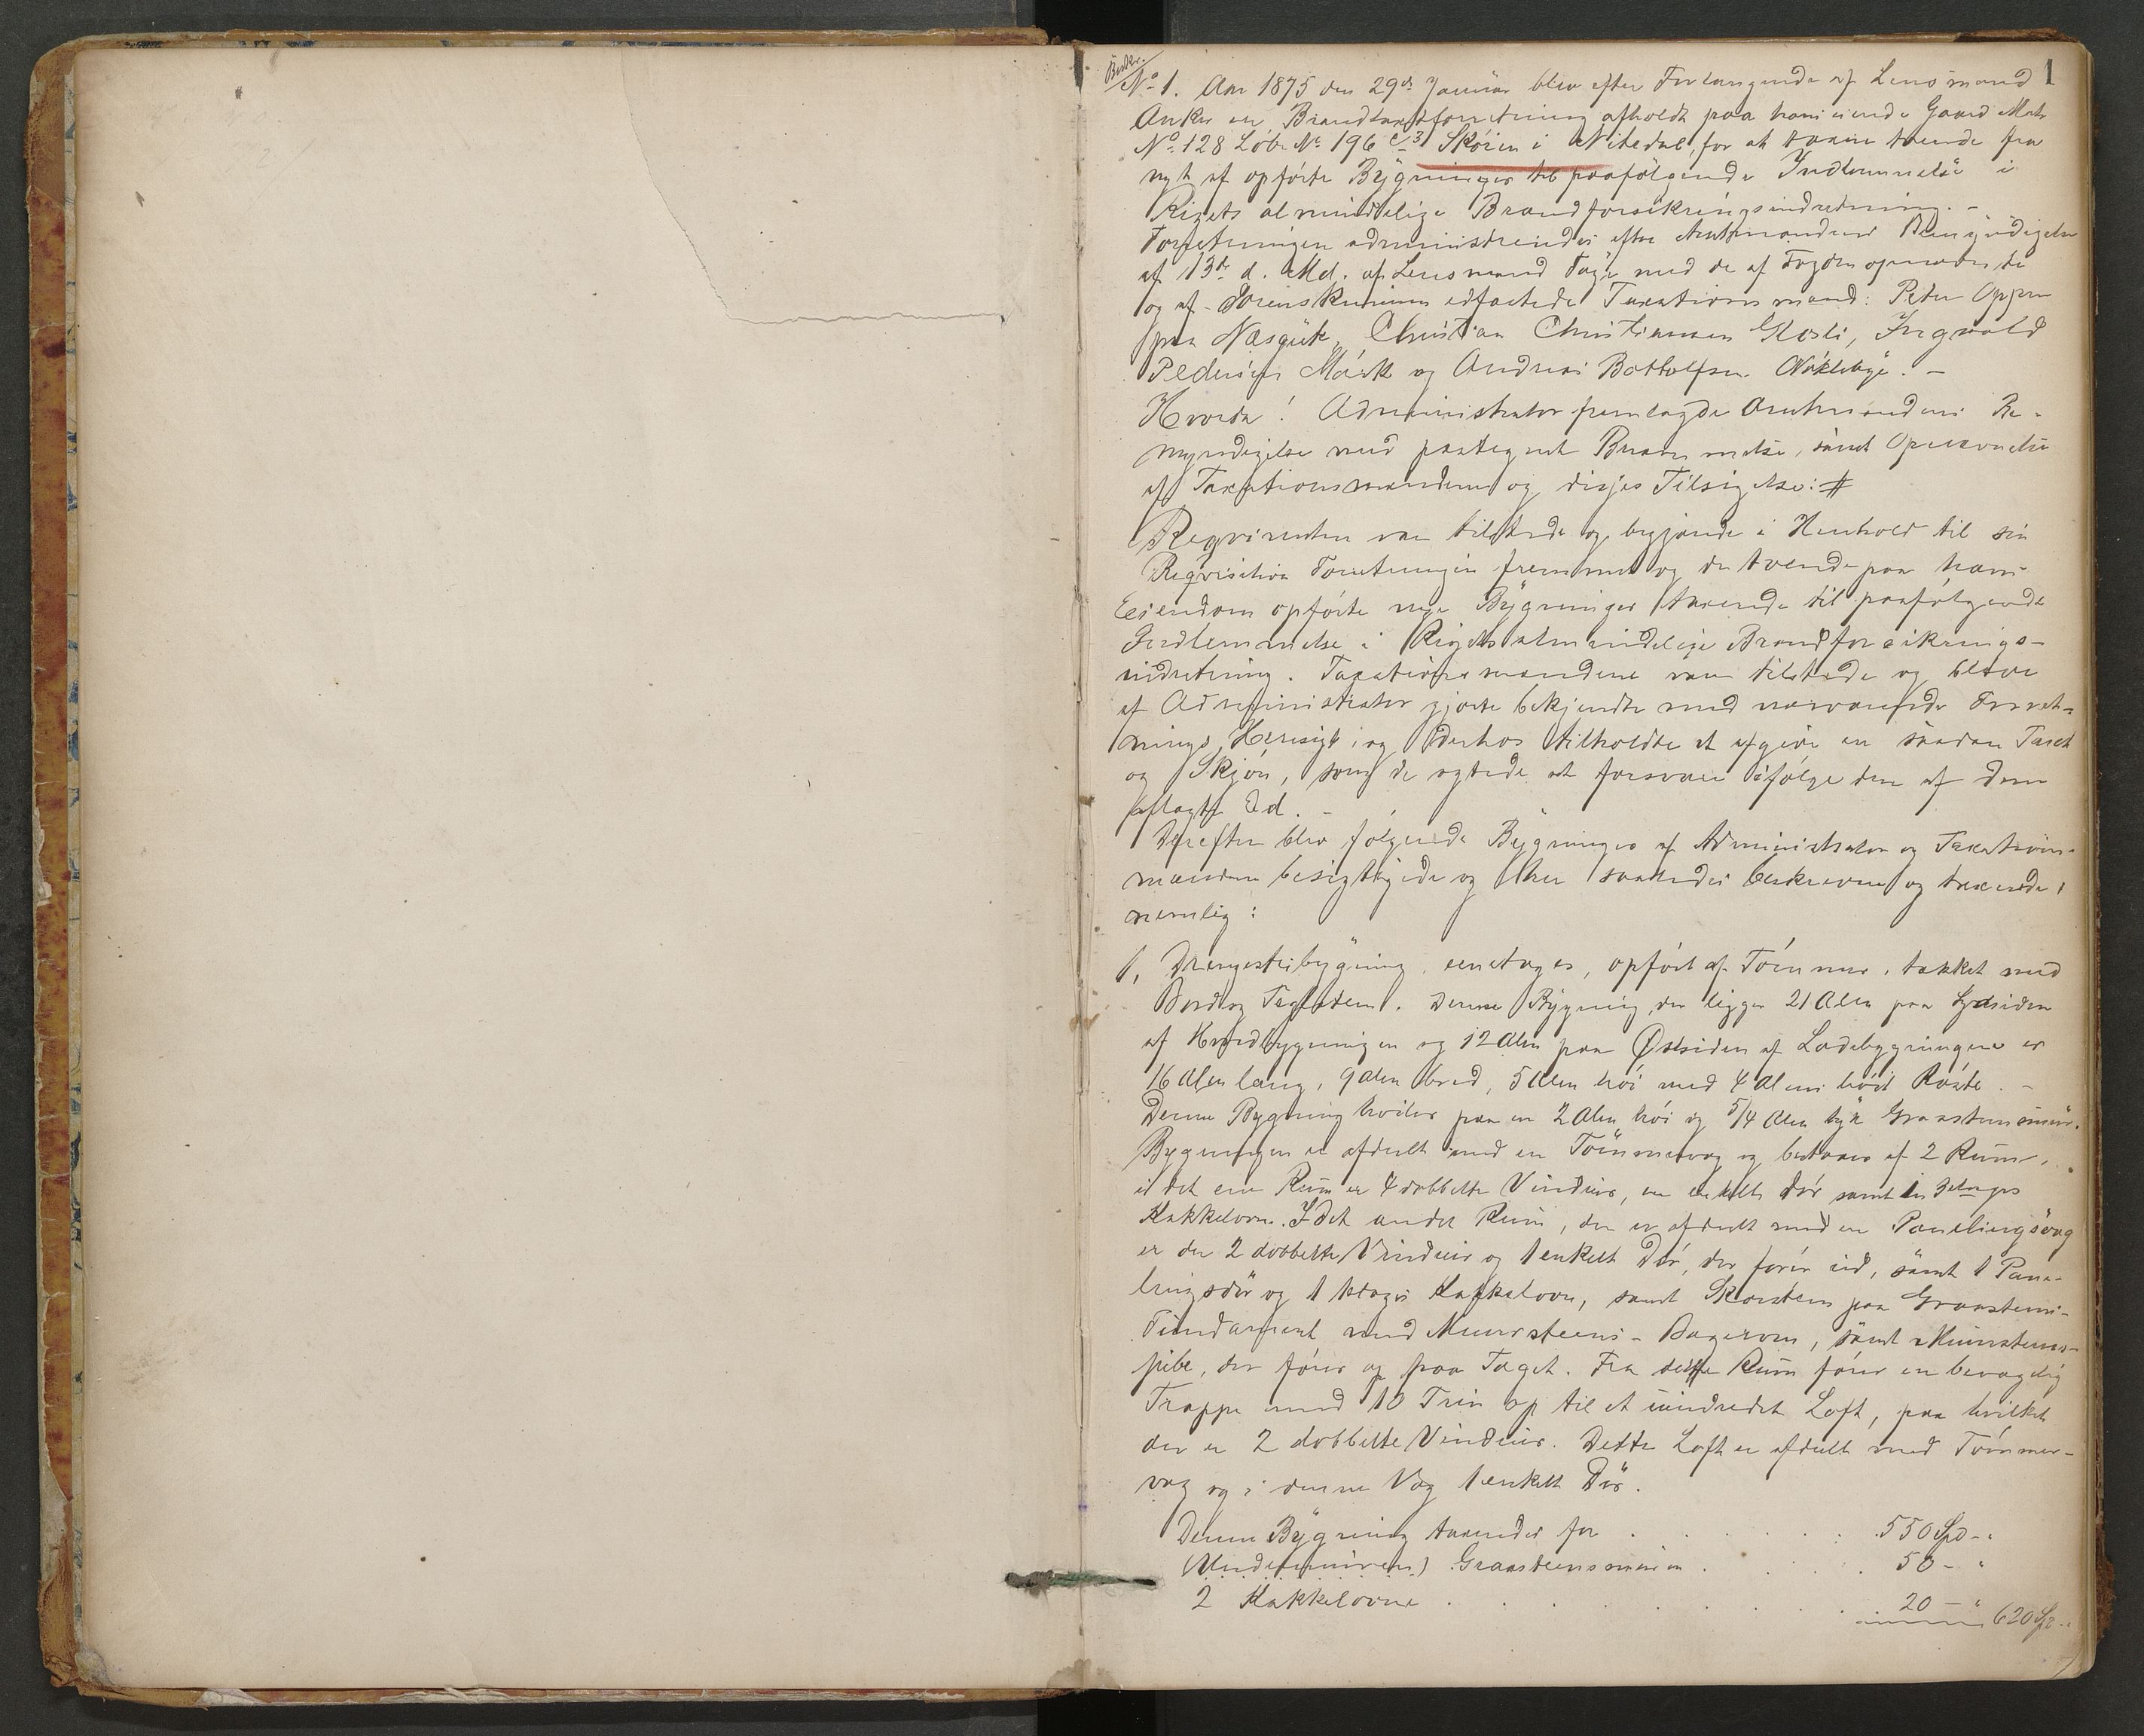 1
Beskr.
No 1. Aar 1875 den 29de Januar blev efter Forlangende af Lensmand
Anker en Brandtaxtforretning afholdt paa hans eiende Gaard Matr
No 128 Løbe No 196 Skøien i Nitedal, for at taxere tvende fra
nyt af opførte Bygninger til paafølgende Indlemmelse i
Rigets almindelige Brandforsikringsindretning. -
Forretningen administreredes efter Amtmandens Bemyndigelse
af 13de d. Md. af Lensmand Fage med de af Fogden opnævnte
og af Sorenskriveren edfæstede Taxationsmænd: Peter
paa Næsgüt, Christian Christiansen Glosli, Ingvald
Pedersen Mørk og Andreas Bottolfsen Nøkleby. -
Hvorda! Administrator fremlagde Amtmandens Be-
myndigelse med paategnet Berammelse, samt Opnævnelse
af Taxationsmændene og disses Tilsigelse: #
Reqvirenten var tilstede og begjærede i Henhold til sin
Reqvisition Forretningen fremmet og de tvende paa hans
Eiendom opførte nye Bygninger taxerede til paafølgende
Indlemmelse i Rigets almindelige Brandforsikrings-
indretning. Taxationsmændene var tilstede og bleve
af Administrator gjorte bekjendte med nærværende Forret-
nings Hensigt, og derhos tilholdte at afgive en saadan Taxt
og Skjøn, som de agtede at forsvare ifølge den af dem
aflagte Ed. -
Derefter blev følgende Bygninger af Administrator og Taxations-
mændene besigtigede og her saaledes beskrevne og taxerede,
nemlig:
1, Drengestubygning, eenetages, opført af Tømmer, tækket med
Bord og Taglsten. Denne Bygning der ligger 21 Alen paa Sydsiden
af Hovedbygningen og 12 Alen paa Østsiden af Ladebygningen er
16 Alen lang, 9 Alen bred, 5 Alen høi med 4 Alens høit Røste. -
Denne Bygning hviler paa en 2 Alen høi og 5/4 Alen tyk Graastensmuur.
Bygningen er afdeelt med en Tømmervæg og bestaar af 2 Rum.
i det ene Rum er 4 dobbelte Vinduer, en enkelt Dør samt en 3 etages
Kakkelovn. I det andet Rum, der er afdeelt med en Panelingsvæg
er der 2 dobbelte Vinduer og 1 enkelt Dør, der fører ud, samt 1 Pane-
lingsdør og 1 etages Kakkelovn, samt Skorsten paa Graastens-
Fundament med Muursteens-Bagerovn, samt Muurstens-
pibe, der fører op paa Taget. Fra dette Rum fører en bevægelig
Trappe med 10 Trin op til et uindredet Loft, paa hvilket
der er 2 dobbelte Vinduer. Dette Loft er afdeelt med Tømmer-
væg og i denne Væg 1 enkelt Dør.
Denne Bygning taxeredes for . . . . . 550 Spd - "
(Undermuren) Graasteensmuren . . . . 50 - "
2 Kakkelovne . . . . . . . . 20 - " 620 Sp - "